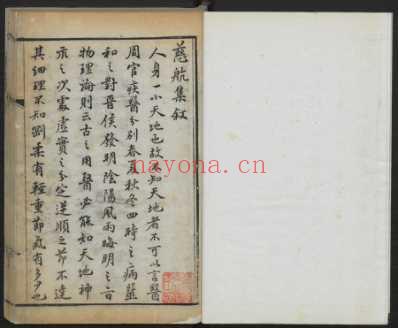 慈航集敘
人身一小天地也故不知天地者不可以言醫
周官疾醫分別春夏秋冬四時之病醫
和之對晉侯發明陰陽風雨晦明之旨
物理論則云古之用醫必能知天地神
祇之次處虛實之分定逆順之節不達
其細理不知劑柔有輕重節氣有多少也
nayona.cn